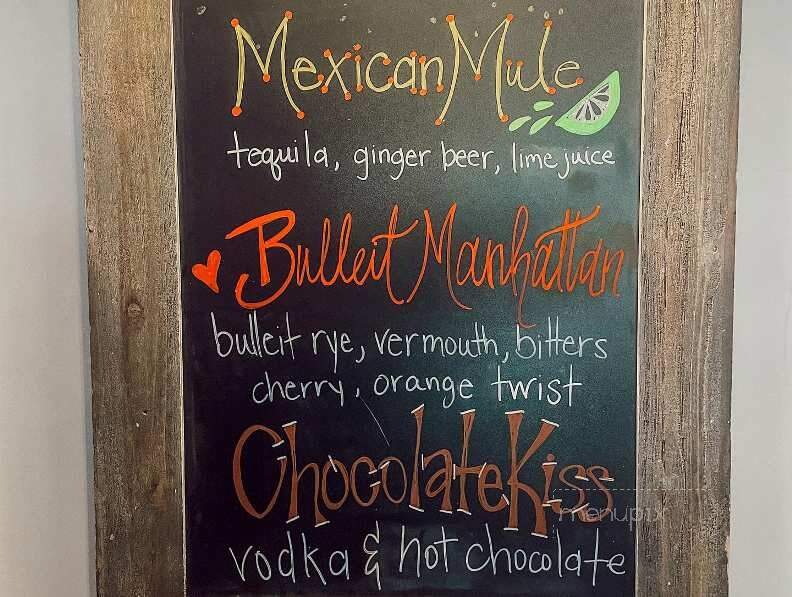 Mexican Mule
tequila, ginger beer, lime juice
Bulleit Manhattan
bulleit rye, vermouth, bitters
cherry, orange twist
Chocolate Kiss
menupix
vodka & hot chocolate